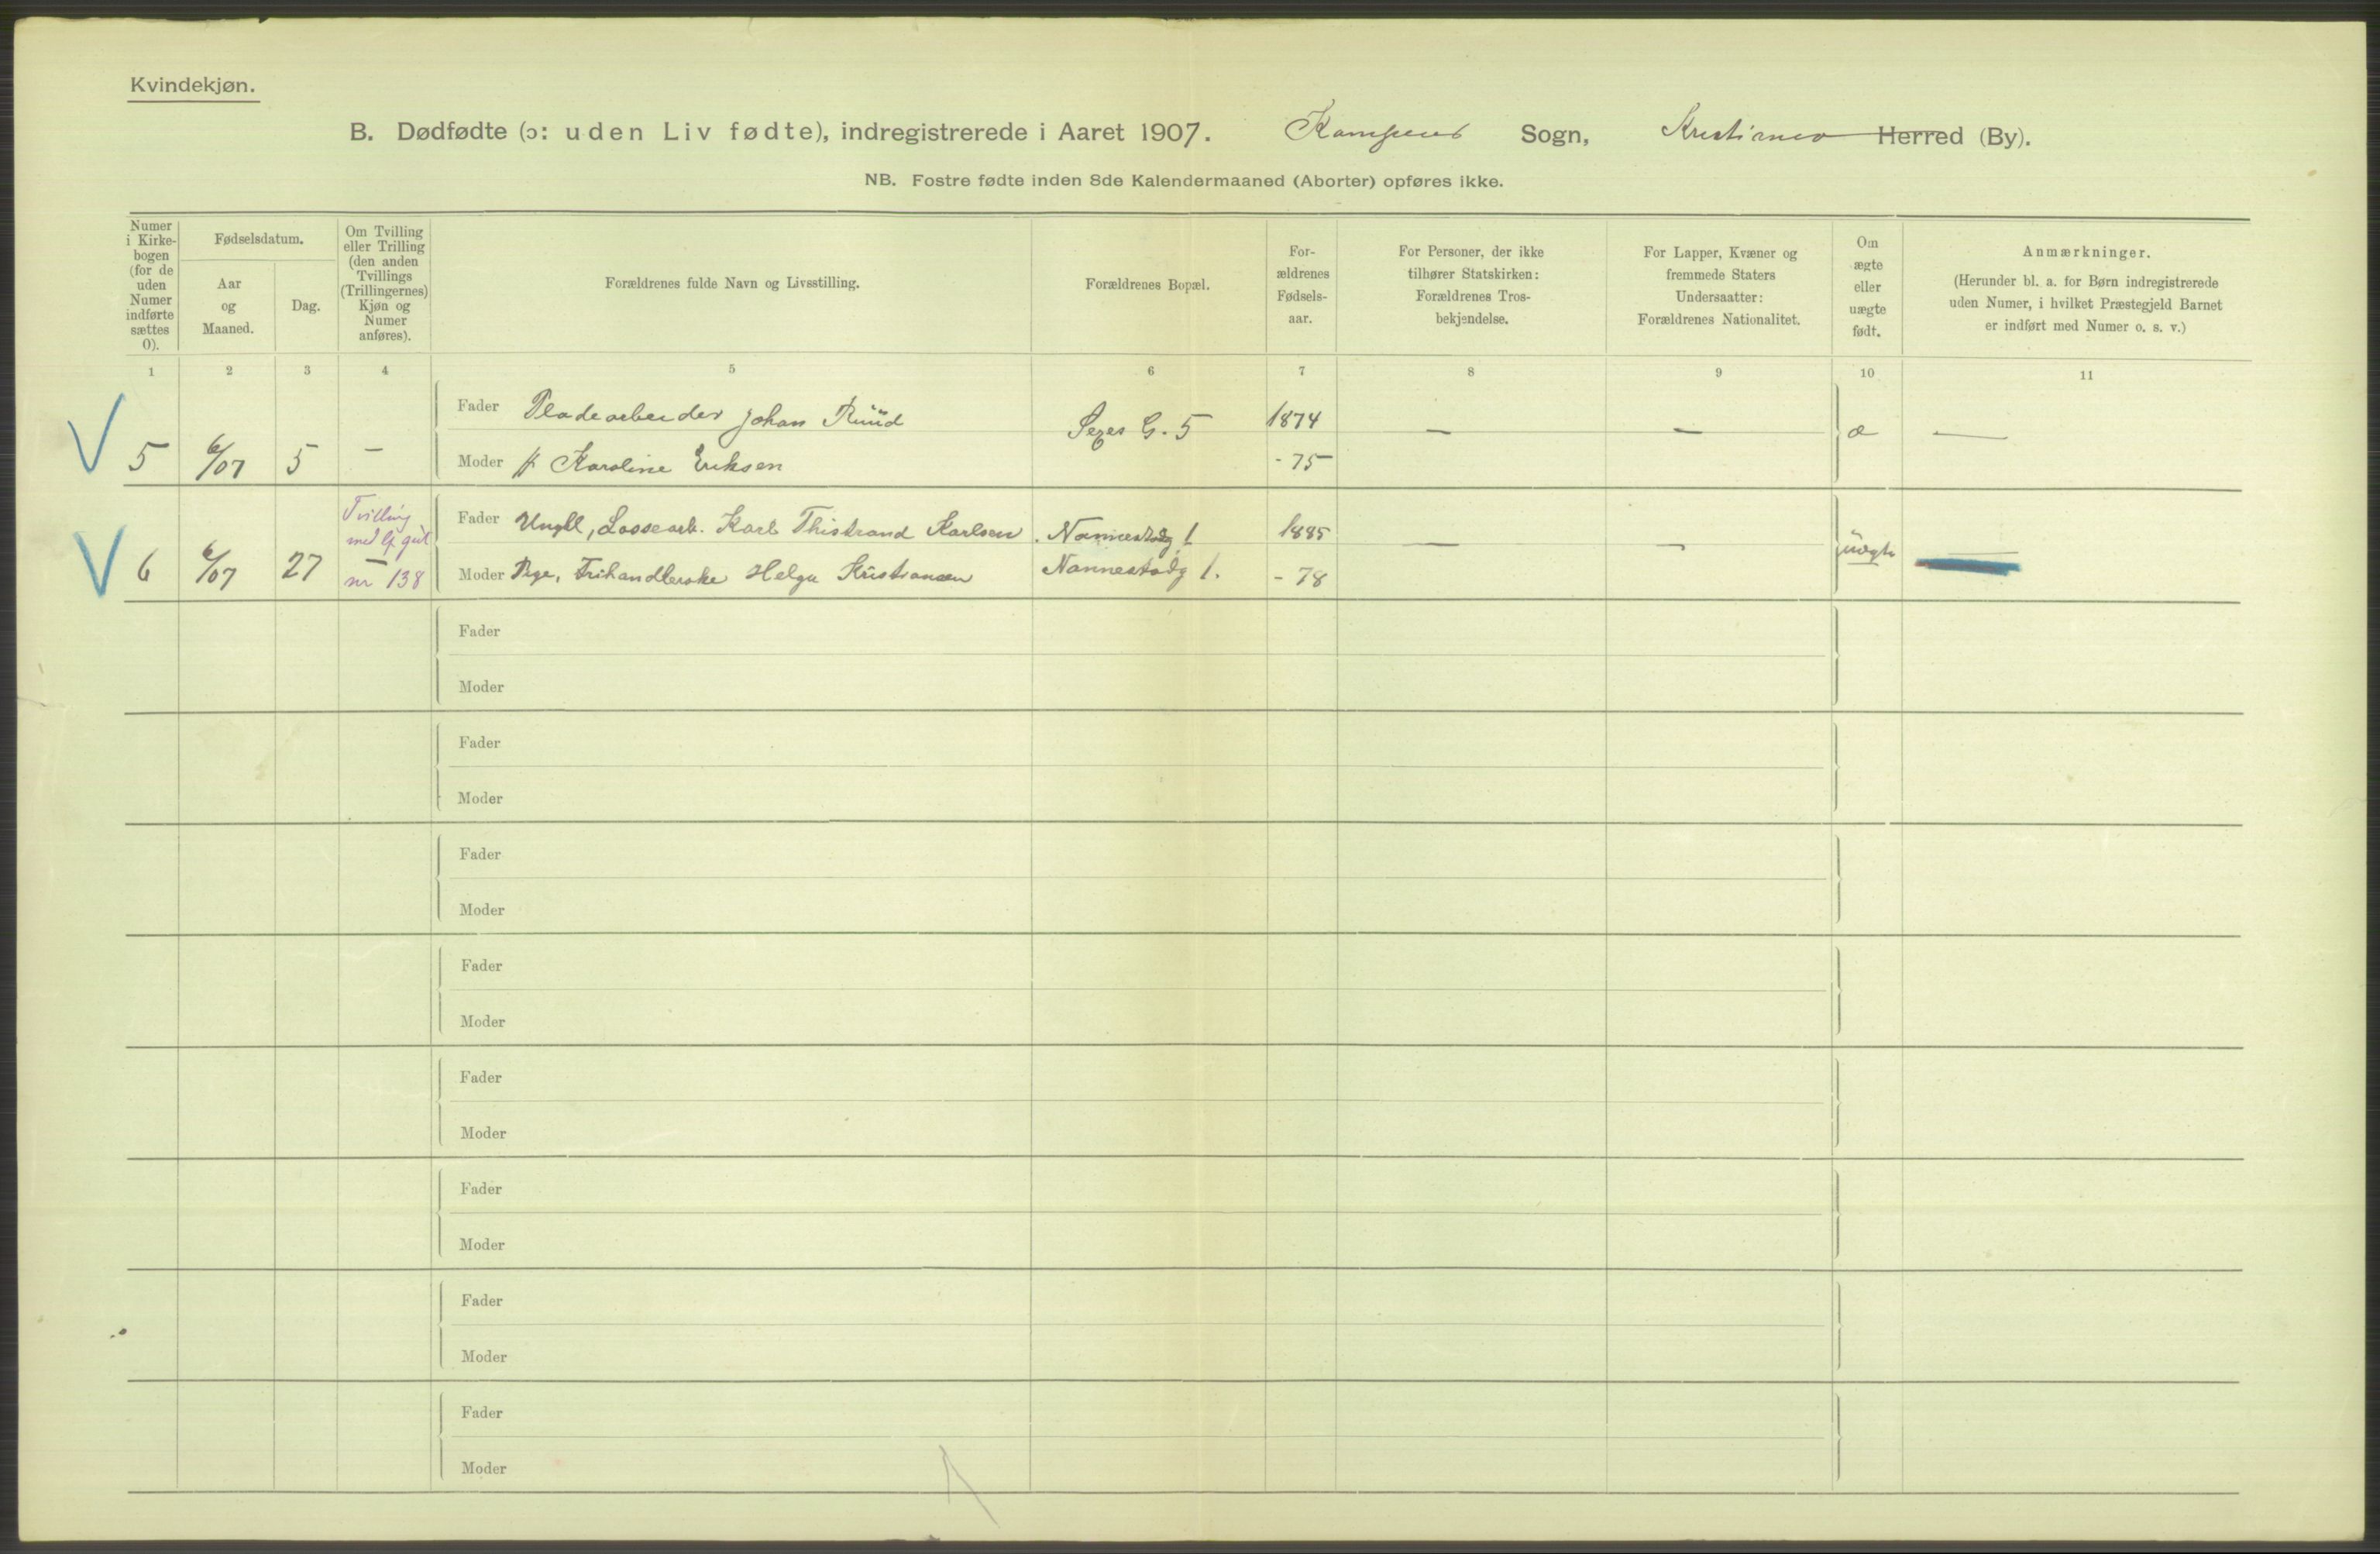 Kvindekjøn.
B. Dødfødte (ɔ: uden Liv fødte), indregistrerede i Aaret 1907. Kampens Sogn, Kristiania Herred (By).
NB. Fostre fødte inden 8de Kalendermaaned (Aborter) opføres ikke.
Numer i Kirkebogen (for de uden Numer indførte sættes 0).
Fødselsdatum.
Aar og Maaned.
Dag.
Om Tvilling eller Trilling (den anden Tvillings (Trillingernes) Kjøn og Numer anføres).
Forældrenes fulde Navn og Livsstilling.
Forældrenes Bopæl.
Forældrenes Fødselsaar.
For Personer, der ikke tilhører Statskirken: Forældrenes Trosbekjendelse.
For Lapper, Kvæner og fremmede Staters Undersaatter: Forældrenes Nationalitet.
Om ægte eller uægte født.
Anmærkninger.
(Herunder bl. a. for Børn indregistrerede uden Numer, i hvilket Præstegjeld Barnet er indført med Numer o. s. v.)
1 2 3 4 5 6 7 8 9 10 11
Fader Pladearbeider Johan Ruud Sexes G. 5 1874 — — æ —
5 6/07 5 — Moder f. Karoline Eriksen - 75
Tvilling med lf. gut nr 138
Fader Ungkl, Lossearb. Karl Thistrand Karlsen Nannestadg 1 1885 — — uægte —
6 6/07 27 — Moder Pige, Frihandlerske Helga Kristiansen Nannestadg 1. - 78
Fader
Moder
Fader
Moder
Fader
Moder
Fader
Moder
Fader
Moder
Fader
Moder
Fader
Moder
Fader
Moder